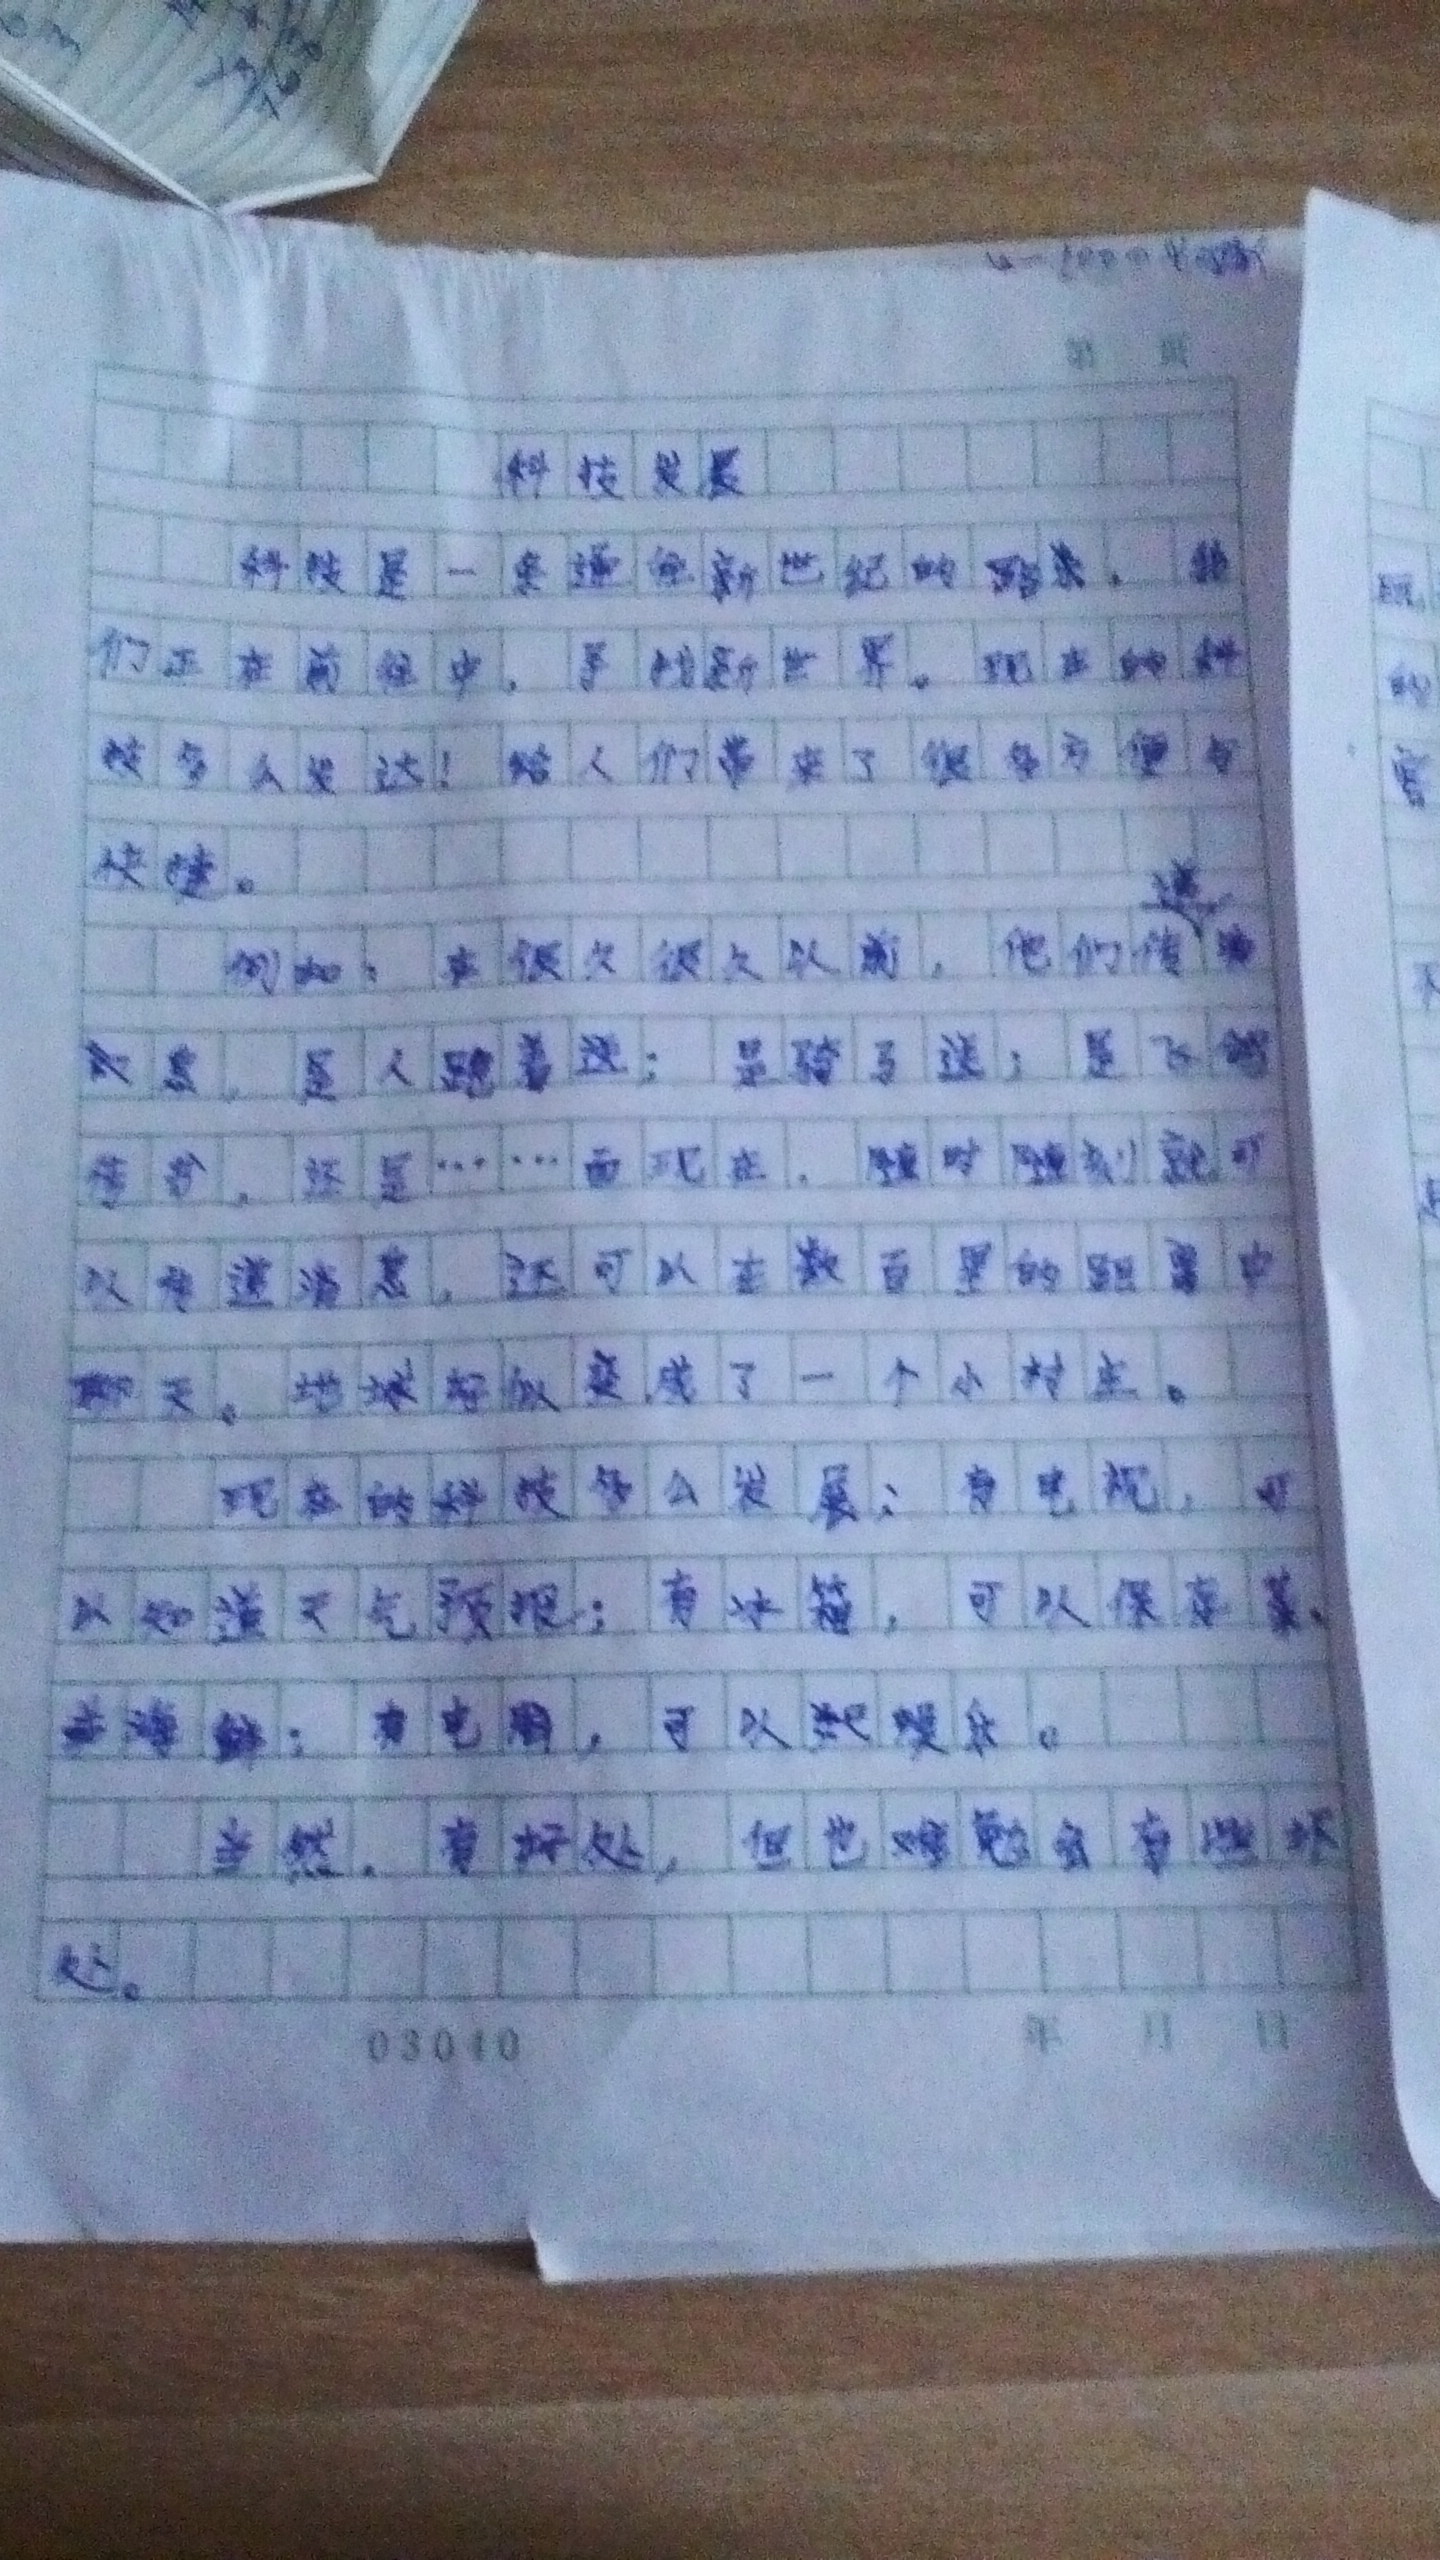 科技发展
科技是一条通往新世纪的路来，我
们正在前往中，寻找新世界。现在的科
技多么发达！给人们带来了很多方便与
快捷。
例如：在很久很久以前，他们传递消
息，是人跑着送；是骑马送；是飞鸽
传书，还是……而现在，随时随刻就可
以传递消息，还可以在数百里的距离中
聊天。地球好似变成了一个小村庄。
现在的科技多么发展；有电视，可
以知道天气预报；有冰箱，可以保存菜、
海鲜；有电脑，可以娱乐。
当然，有好处，但也难免会有些坏
处。
03040
年 月 日